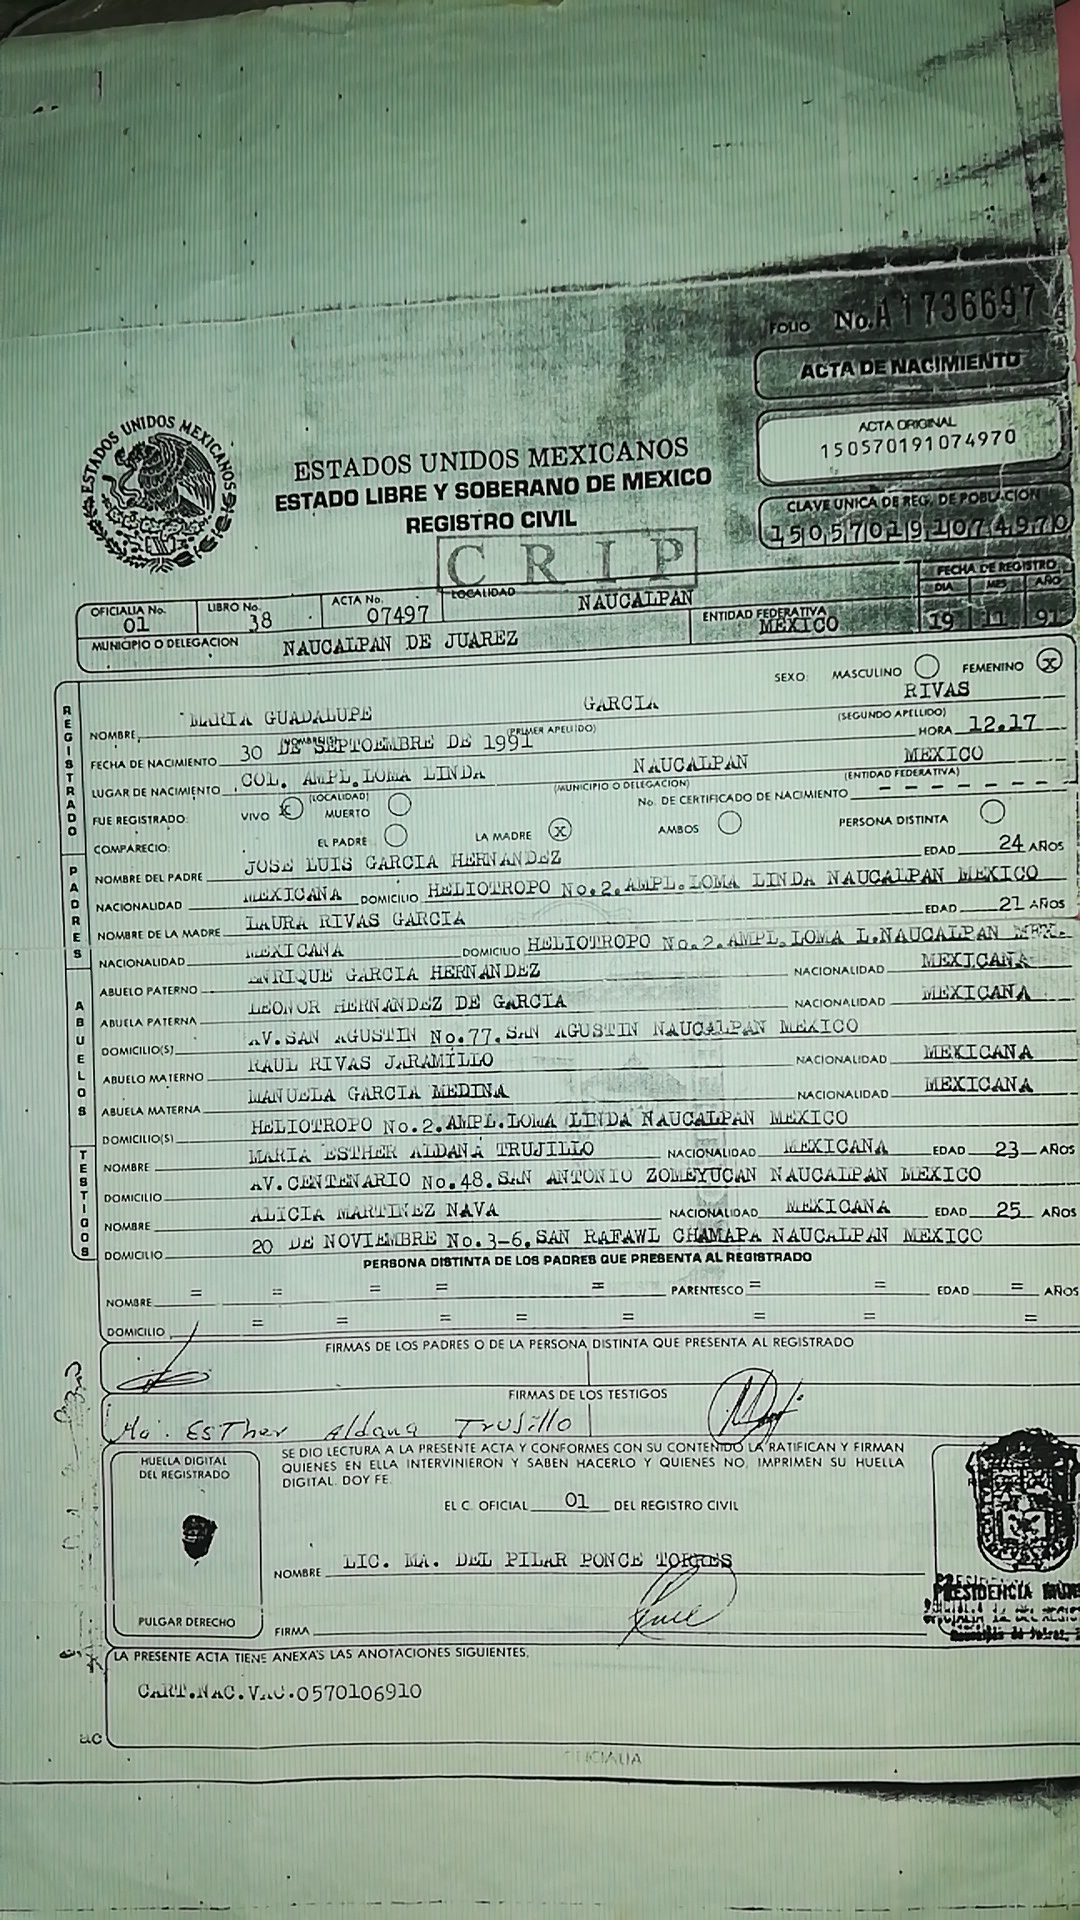 FOLIO No. A 1736697
ACTA DE NACIMIENTO
ACTA ORIGINAL
150570191074970
CLAVE UNICA DE REG. DE POBLACION
150570191074970
ESTADOS UNIDOS MEXICANOS
ESTADOS UNIDOS MEXICANOS
ESTADO LIBRE Y SOBERANO DE MEXICO
REGISTRO CIVIL
CRIP
FECHA DE REGISTRO
DIA MES AÑO
19 11 91
OFICIALIA No. 01 LIBRO No. 38 ACTA No. 07497 LOCALIDAD NAUCALPAN
MUNICIPIO O DELEGACION NAUCALPAN DE JUAREZ ENTIDAD FEDERATIVA MEXICO
REGISTRADO
SEXO: MASCULINO FEMENINO X
NOMBRE MARIA GUADALUPE GARCIA RIVAS
(NOMBRE(S)) (PRIMER APELLIDO) (SEGUNDO APELLIDO)
FECHA DE NACIMIENTO 30 DE SEPTOEMBRE DE 1991 HORA 12.17
LUGAR DE NACIMIENTO COL. AMPL.LOMA LINDA NAUCALPAN MEXICO
(LOCALIDAD) (MUNICIPIO O DELEGACION) (ENTIDAD FEDERATIVA)
FUE REGISTRADO: VIVO X MUERTO No. DE CERTIFICADO DE NACIMIENTO - - - - - -
COMPARECIO: EL PADRE LA MADRE X AMBOS PERSONA DISTINTA
PADRES
NOMBRE DEL PADRE JOSE LUIS GARCIA HERNANDEZ EDAD 24 AÑOS
NACIONALIDAD MEXICANA DOMICILIO HELIOTROPO No.2.AMPL.LOMA LINDA NAUCALPAN MEXICO
NOMBRE DE LA MADRE LAURA RIVAS GARCIA EDAD 21 AÑOS
NACIONALIDAD MEXICANA DOMICILIO HELIOTROPO No.2.AMPL.LOMA L.NAUCALPAN MEX.
ABUELOS
ABUELO PATERNO ENRIQUE GARCIA HERNANDEZ NACIONALIDAD MEXICANA
ABUELA PATERNA LEONOR HERNANDEZ DE GARCIA NACIONALIDAD MEXICANA
DOMICILIO(S) AV.SAN AGUSTIN No.77.SAN AGUSTIN NAUCALPAN MEXICO
ABUELO MATERNO RAUL RIVAS JARAMILLO NACIONALIDAD MEXICANA
ABUELA MATERNA MANUELA GARCIA MEDINA NACIONALIDAD MEXICANA
DOMICILIO(S) HELIOTROPO No.2.AMPL.LOMA LINDA NAUCALPAN MEXICO
TESTIGOS
NOMBRE MARIA ESTHER ALDANA TRUJILLO NACIONALIDAD MEXICANA EDAD 23 AÑOS
DOMICILIO AV.CENTENARIO No.48.SAN ANTONIO ZOMEYUCAN NAUCALPAN MEXICO
NOMBRE ALICIA MARTINEZ NAVA NACIONALIDAD MEXICANA EDAD 25 AÑOS
DOMICILIO 20 DE NOVIEMBRE No.3-6,SAN RAFAWL CHAMAPA NAUCALPAN MEXICO
PERSONA DISTINTA DE LOS PADRES QUE PRESENTA AL REGISTRADO
NOMBRE = = = = = PARENTESCO = = EDAD = AÑOS
DOMICILIO = = = = = = = =
FIRMAS DE LOS PADRES O DE LA PERSONA DISTINTA QUE PRESENTA AL REGISTRADO
FIRMAS DE LOS TESTIGOS
Ma. ESTher Aldana TruJillo
HUELLA DIGITAL
DEL REGISTRADO
PULGAR DERECHO
SE DIO LECTURA A LA PRESENTE ACTA Y CONFORMES CON SU CONTENIDO LA RATIFICAN Y FIRMAN
QUIENES EN ELLA INTERVINIERON Y SABEN HACERLO Y QUIENES NO, IMPRIMEN SU HUELLA
DIGITAL. DOY FE.
EL C. OFICIAL 01 DEL REGISTRO CIVIL
NOMBRE LIC. MA. DEL PILAR PONCE TORRES
FIRMA
PRESIDENCIA
LA PRESENTE ACTA TIENE ANEXAS LAS ANOTACIONES SIGUIENTES.
CART.NAC.VAC.0570106910
ac
OFICIALIA